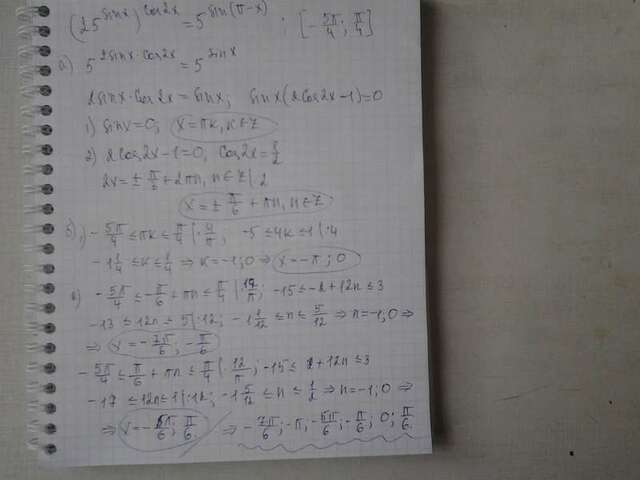 (25^sinx)^cos2x = 5^sin(π-x) ; [-5π/4; π/4]
а) 5^2sinx·cos2x = 5^sinx
2sinx·cos2x = sinx; sinx(2cos2x-1)=0
1) sinx=0; x=πk, k∈Z
2) 2cos2x-1=0, cos2x=1/2
2x=± π/3+2πn, n∈Z | 2
x=± π/6 +πn, n∈Z
б) 1) -5π/4 ≤ πk ≤ π/4 |·4/π; -5 ≤ 4k ≤ 1 |:4
-1 1/4 ≤ k ≤ 1/4 ⇒ k=-1; 0 ⇒ x=-π; 0
2) -5π/4 ≤ -π/6 + πn ≤ π/4 |·12/π; -15 ≤ -2+12n ≤ 3
-13 ≤ 12n ≤ 5 |:12; -1 1/12 ≤ n ≤ 5/12 ⇒ n=-1; 0 ⇒
⇒ x=-7π/6; -π/6
-5π/4 ≤ π/6 + πn ≤ π/4 |·12/π; -15 ≤ 2+12n ≤ 3
-17 ≤ 12n ≤ 1 |:12; -1 5/12 ≤ n ≤ ⇒ n=-1; 0 ⇒
⇒ x=-5π/6; π/6. ⇒ -7π/6; -π; -5π/6; -π/6; 0; π/6.